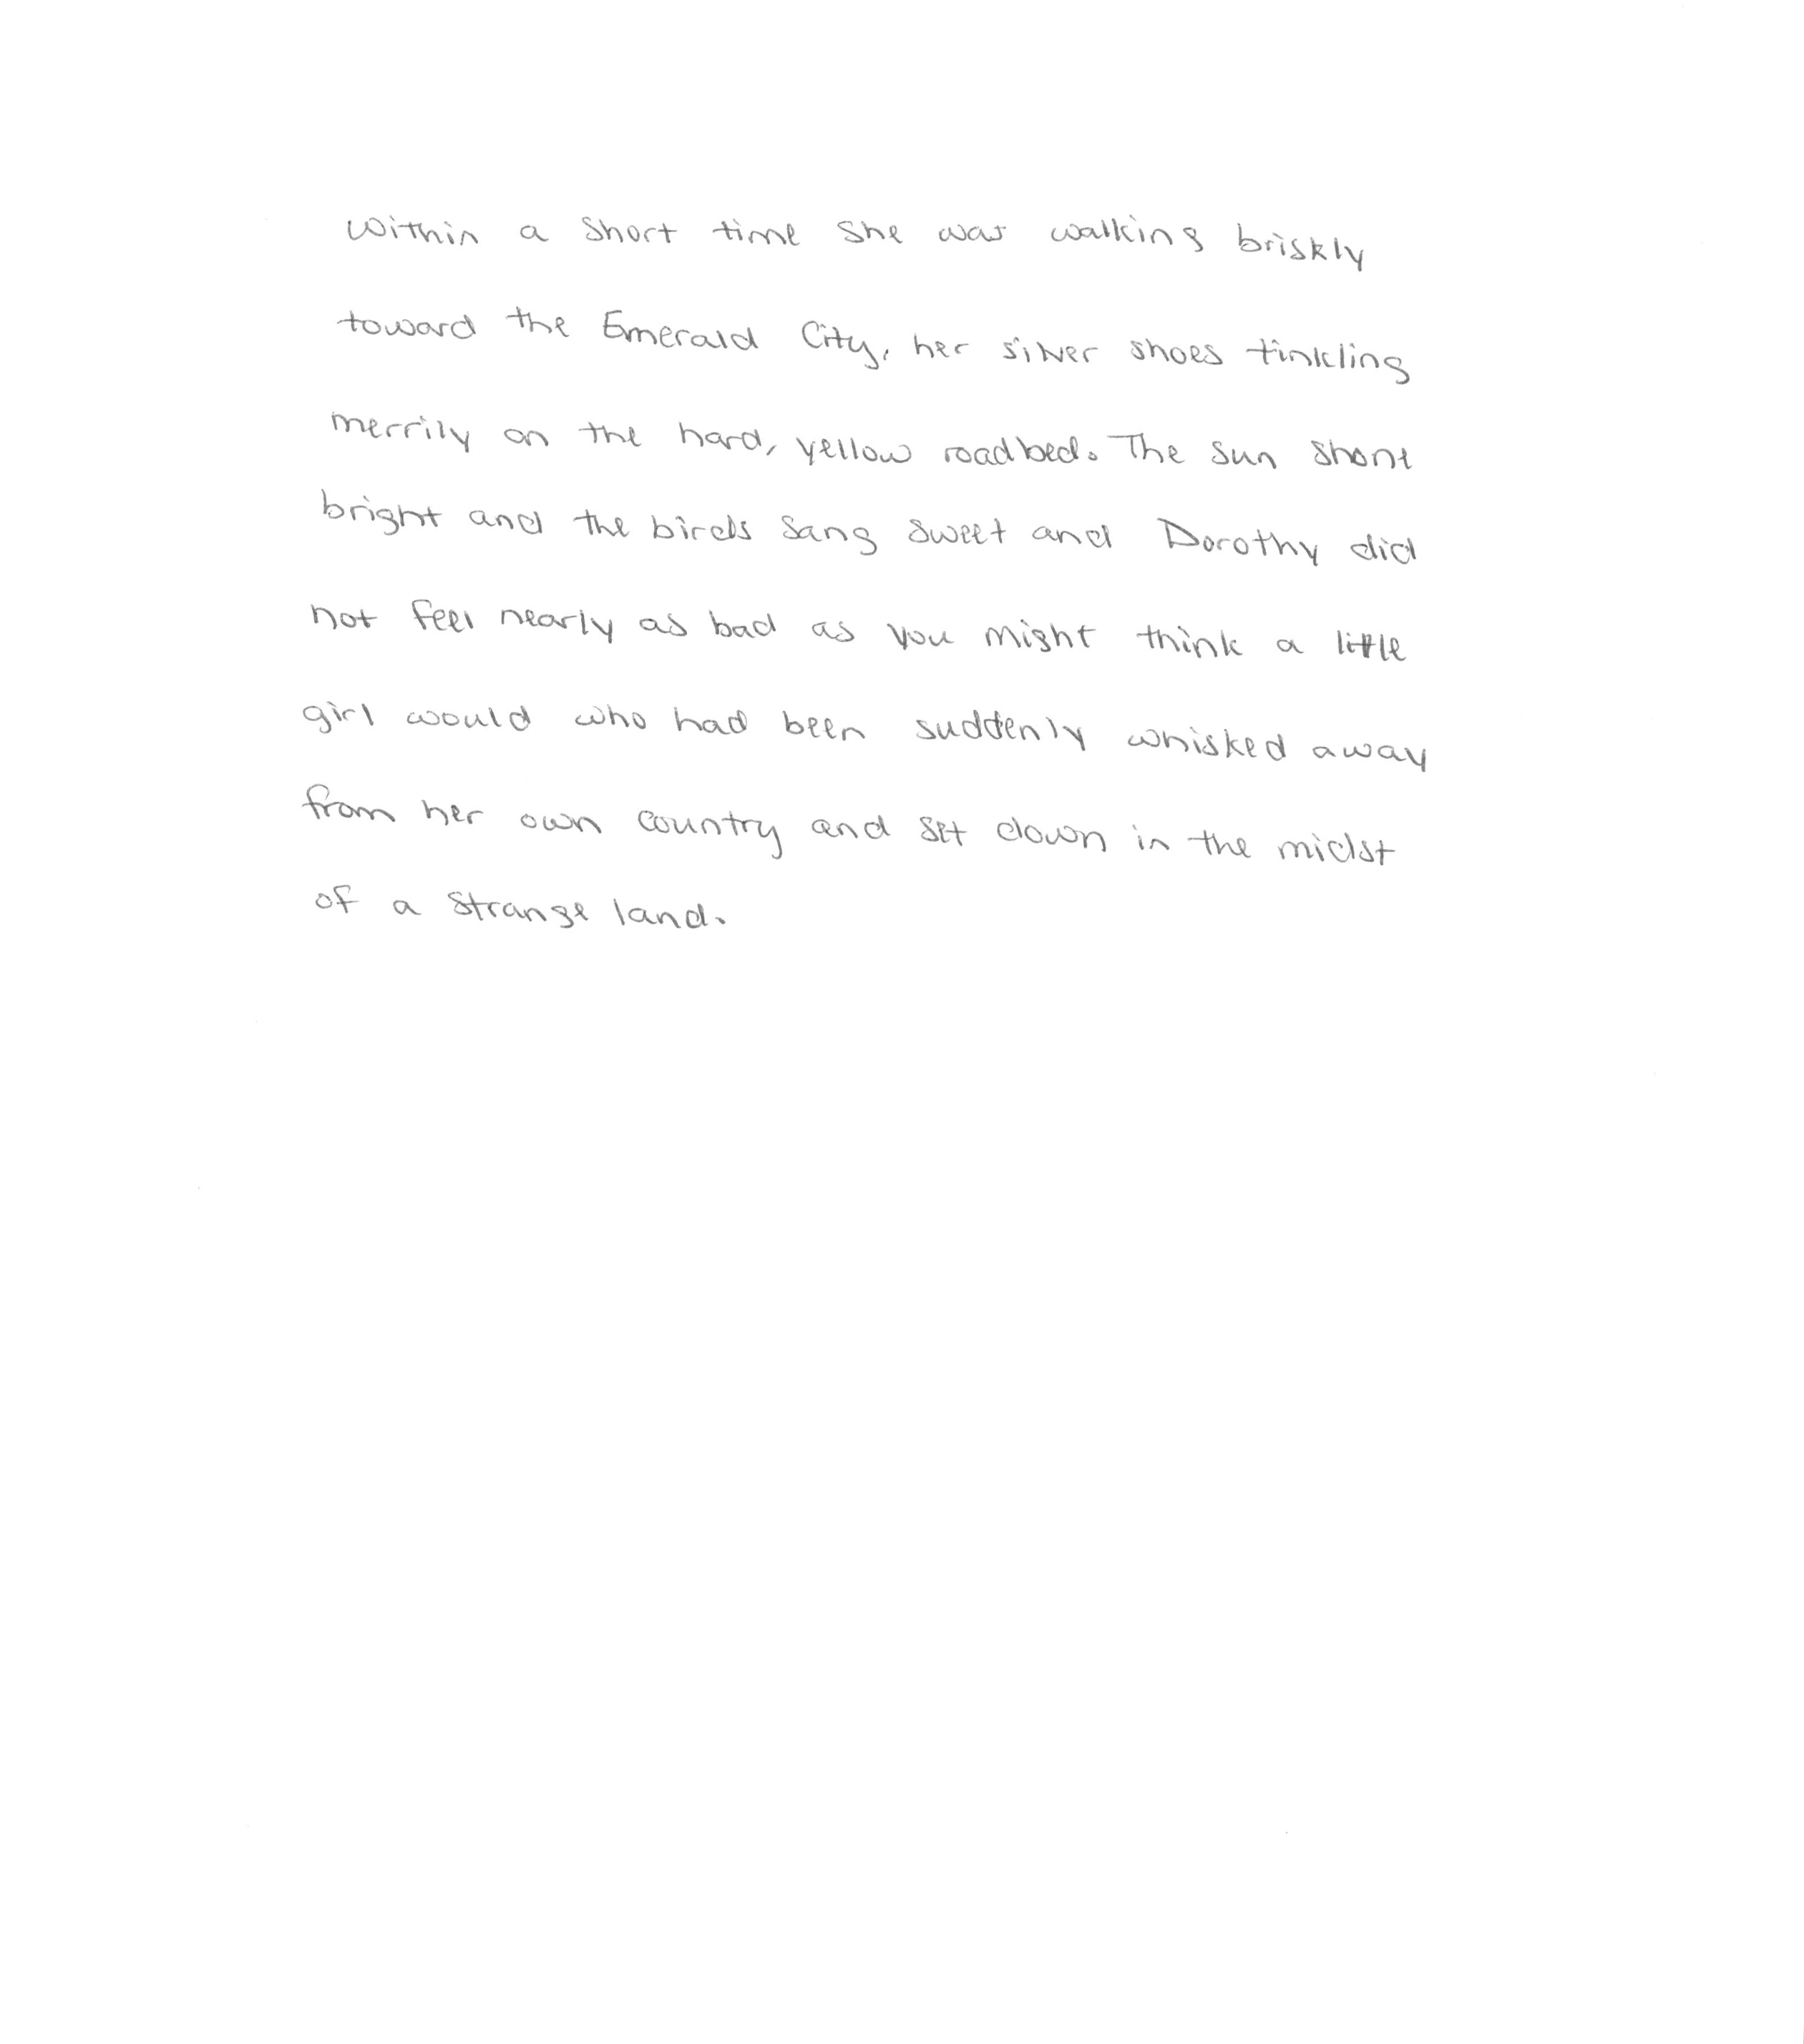 Within a short time she was walking briskly
toward the Emerald City, her silver shoes tinkling
merrily on the hard, yellow roadbed. The sun shone
bright and the birds sang sweet and Dorothy did
not feel nearly as bad as you might think a little
girl would who had been suddenly whisked away
from her own country and set down in the midst
of a strange land.